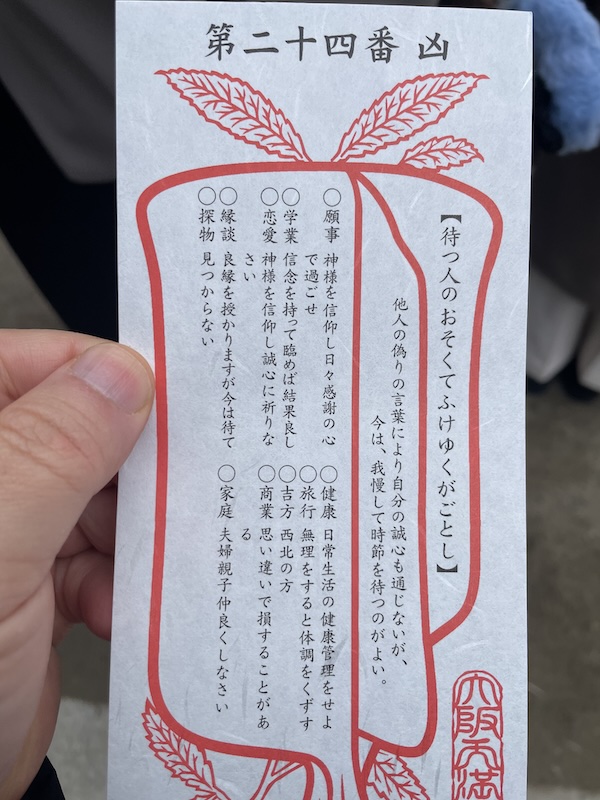 第二十四番 凶
【待つ人のおそくてふけゆくがごとし】
他人の偽りの言葉により自分の誠心も通じないが、
今は、我慢して時節を待つのがよい。
○願事 神様を信仰し日々感謝の心
で過ごせ
○学業 信念を持って臨めば結果良し
○恋愛 神様を信仰し誠心に祈りな
さい
○縁談 良縁を授かりますが今は待て
○探物 見つからない
○健康 日常生活の健康管理をせよ
○旅行 無理をすると体調をくずす
○吉方 西北の方
○商業 思い違いで損することがあ
る
○家庭 夫婦親子仲良くしなさい
大阪天満